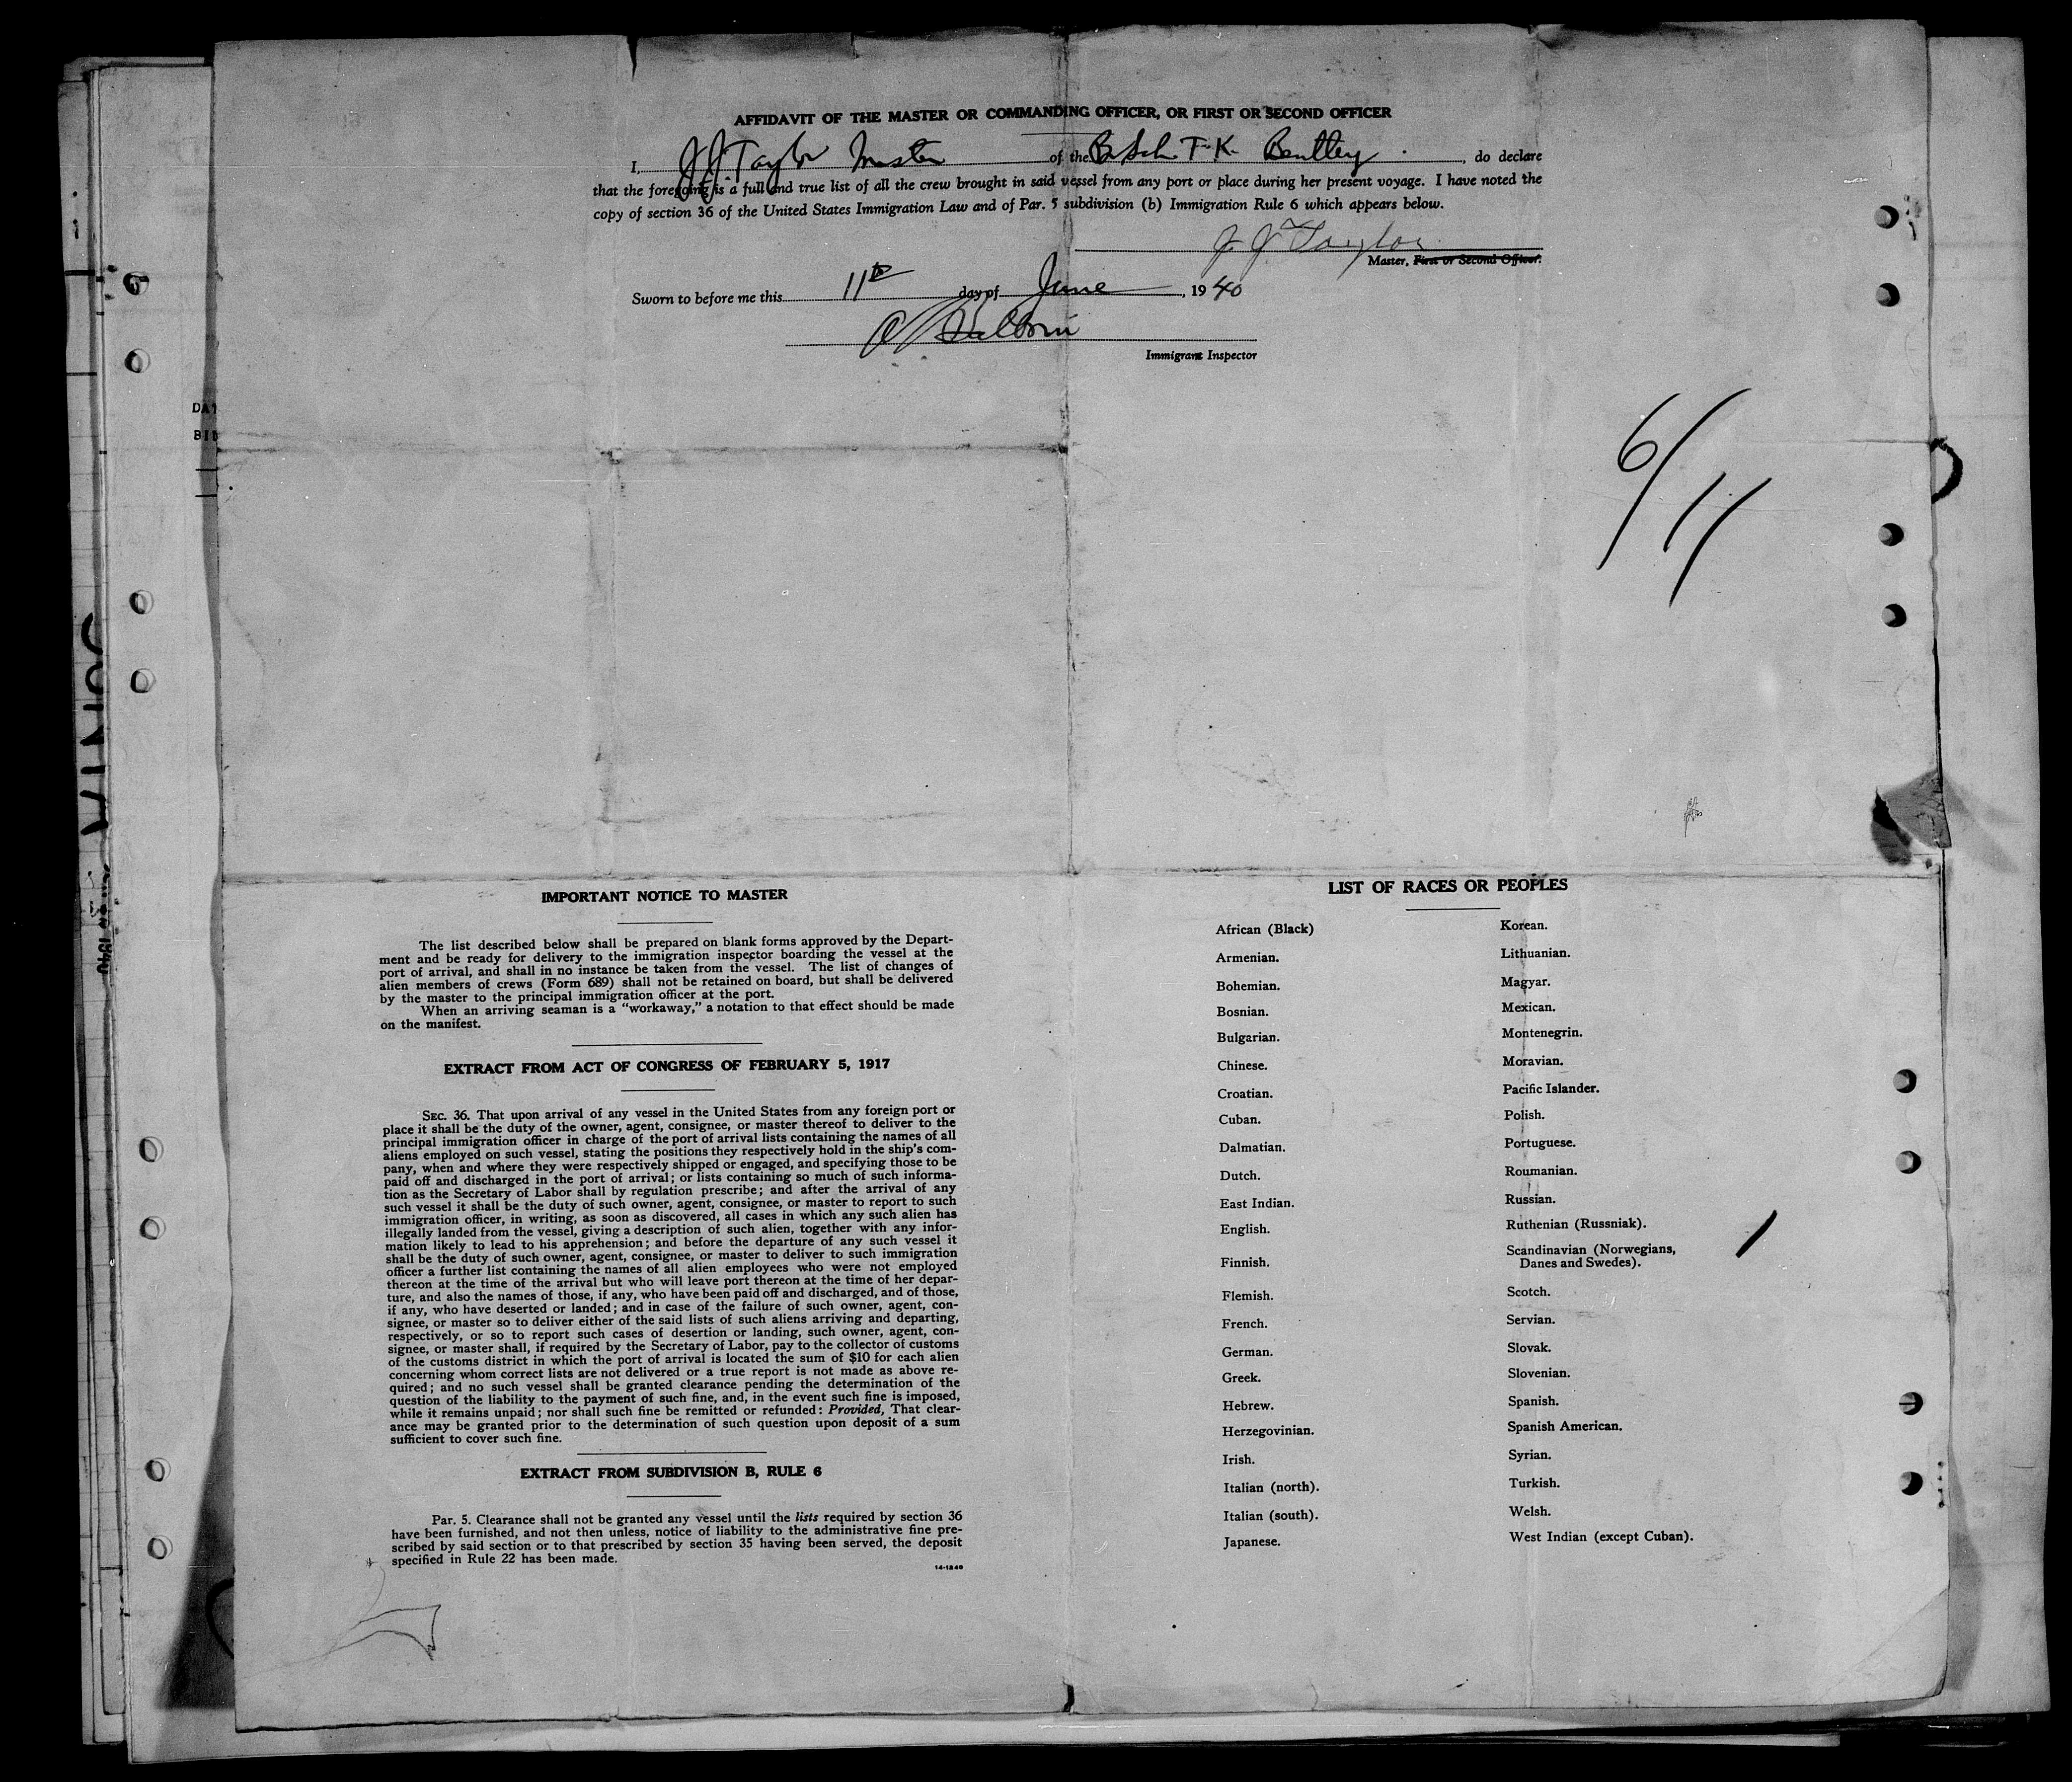 AFFIDAVIT OF THE MASTER OR COMMANDING OFFICER, OR FIRST OR SECOND OFFICER
I, J J Taylor Master of the Br Sch. T. K. Bentley , do declare
that the foregoing is a full and true list of all the crew brought in said vessel from any port or place during her present voyage. I have noted the
copy of section 36 of the United States Immigration Law and of Par. 5 subdivision (b) Immigration Rule 6 which appears below.
J J Taylor
Master, First or Second Officer.
Sworn to before me this 11th day of June , 19 40
Immigrant Inspector
6/11
DAT
BIL
IMPORTANT NOTICE TO MASTER
The list described below shall be prepared on blank forms approved by the Depart-
ment and be ready for delivery to the immigration inspector boarding the vessel at the
port of arrival, and shall in no instance be taken from the vessel. The list of changes of
alien members of crews (Form 689) shall not be retained on board, but shall be delivered
by the master to the principal immigration officer at the port.
When an arriving seaman is a "workaway," a notation to that effect should be made
on the manifest.
EXTRACT FROM ACT OF CONGRESS OF FEBRUARY 5, 1917
SEC. 36. That upon arrival of any vessel in the United States from any foreign port or
place it shall be the duty of the owner, agent, consignee, or master thereof to deliver to the
principal immigration officer in charge of the port of arrival lists containing the names of all
aliens employed on such vessel, stating the positions they respectively hold in the ship's com-
pany, when and where they were respectively shipped or engaged, and specifying those to be
paid off and discharged in the port of arrival; or lists containing so much of such informa-
tion as the Secretary of Labor shall by regulation prescribe; and after the arrival of any
such vessel it shall be the duty of such owner, agent, consignee, or master to report to such
immigration officer, in writing, as soon as discovered, all cases in which any such alien has
illegally landed from the vessel, giving a description of such alien, together with any infor-
mation likely to lead to his apprehension; and before the departure of any such vessel it
shall be the duty of such owner, agent, consignee, or master to deliver to such immigration
officer a further list containing the names of all alien employees who were not employed
thereon at the time of the arrival but who will leave port thereon at the time of her depar-
ture, and also the names of those, if any, who have been paid off and discharged, and of those,
if any, who have deserted or landed; and in case of the failure of such owner, agent, con-
signee, or master so to deliver either of the said lists of such aliens arriving and departing,
respectively, or so to report such cases of desertion or landing, such owner, agent, con-
signee, or master shall, if required by the Secretary of Labor, pay to the collector of customs
of the customs district in which the port of arrival is located the sum of $10 for each alien
concerning whom correct lists are not delivered or a true report is not made as above re-
quired; and no such vessel shall be granted clearance pending the determination of the
question of the liability to the payment of such fine, and, in the event such fine is imposed,
while it remains unpaid; nor shall such fine be remitted or refunded: Provided, That clear-
ance may be granted prior to the determination of such question upon deposit of a sum
sufficient to cover such fine.
EXTRACT FROM SUBDIVISION B, RULE 6
Par. 5. Clearance shall not be granted any vessel until the lists required by section 36
have been furnished, and not then unless, notice of liability to the administrative fine pre-
scribed by said section or to that prescribed by section 35 having been served, the deposit
specified in Rule 22 has been made.
14-1240
LIST OF RACES OR PEOPLES
African (Black)
Armenian.
Bohemian.
Bosnian.
Bulgarian.
Chinese.
Croatian.
Cuban.
Dalmatian.
Dutch.
East Indian.
English.
Finnish.
Flemish.
French.
German.
Greek.
Hebrew.
Herzegovinian.
Irish.
Italian (north).
Italian (south).
Japanese.
Korean.
Lithuanian.
Magyar.
Mexican.
Montenegrin.
Moravian.
Pacific Islander.
Polish.
Portuguese.
Roumanian.
Russian.
Ruthenian (Russniak).
Scandinavian (Norwegians,
Danes and Swedes).
Scotch.
Servian.
Slovak.
Slovenian.
Spanish.
Spanish American.
Syrian.
Turkish.
Welsh.
West Indian (except Cuban).